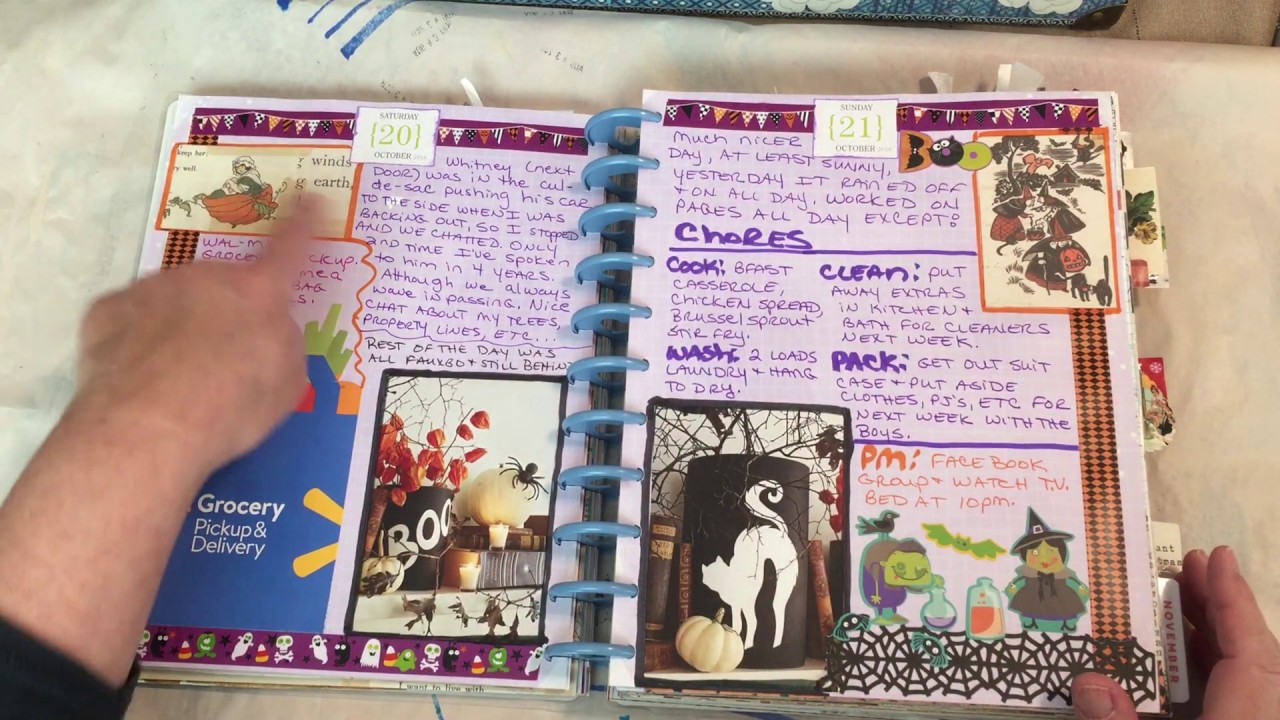 SATURDAY
{20}
OCTOBER 2018
keep her.
ry well.
winds
g earth,
WAL-M
GROCE CKUP.
MEA
BAG
S.
Grocery
Pickup &
Delivery
Whitney (next
DOOR) WAS IN THE CUL-
de-sac pushing his car
TO THE SIDE WHEN I WAS
BACKING OUT, SO I STOPPED
AND WE CHATTED. ONLY
2ND TIME I'VE SPOKEN
to him in 4 YEARS.
Although we always
wave in passing. Nice
CHAT ABOUT MY TREES,
PROPERTY LINES, ETC...
REST OF THE DAY WAS
ALL FAUXBO + STILL BEHIND
BOO
I want to live with
SUNDAY
{21}
OCTOBER 2018
BOO
MUCH NICER
DAY, AT LEAST SUNNY,
YESTERDAY IT RAINED OFF
+ ON ALL DAY. WORKED ON
PAGES ALL DAY EXCEPT:
CHORES
COOK: BFAST
CASSEROLE,
CHICKEN SPREAD,
BRUSSEL SPROUT
STIR FRY.
WASH: 2 LOADS
LAUNDRY + HANG
TO DRY.
CLEAN: PUT
AWAY EXTRAS
IN KITCHEN +
BATH FOR CLEANERS
NEXT WEEK.
PACK: GET OUT SUIT
CASE + PUT ASIDE
CLOTHES, PJ'S, ETC FOR
NEXT WEEK WITH THE
BOYS.
PM: FACEBOOK
GROUP + WATCH T.V.
BED AT 10PM.
ant
NOVEMBER